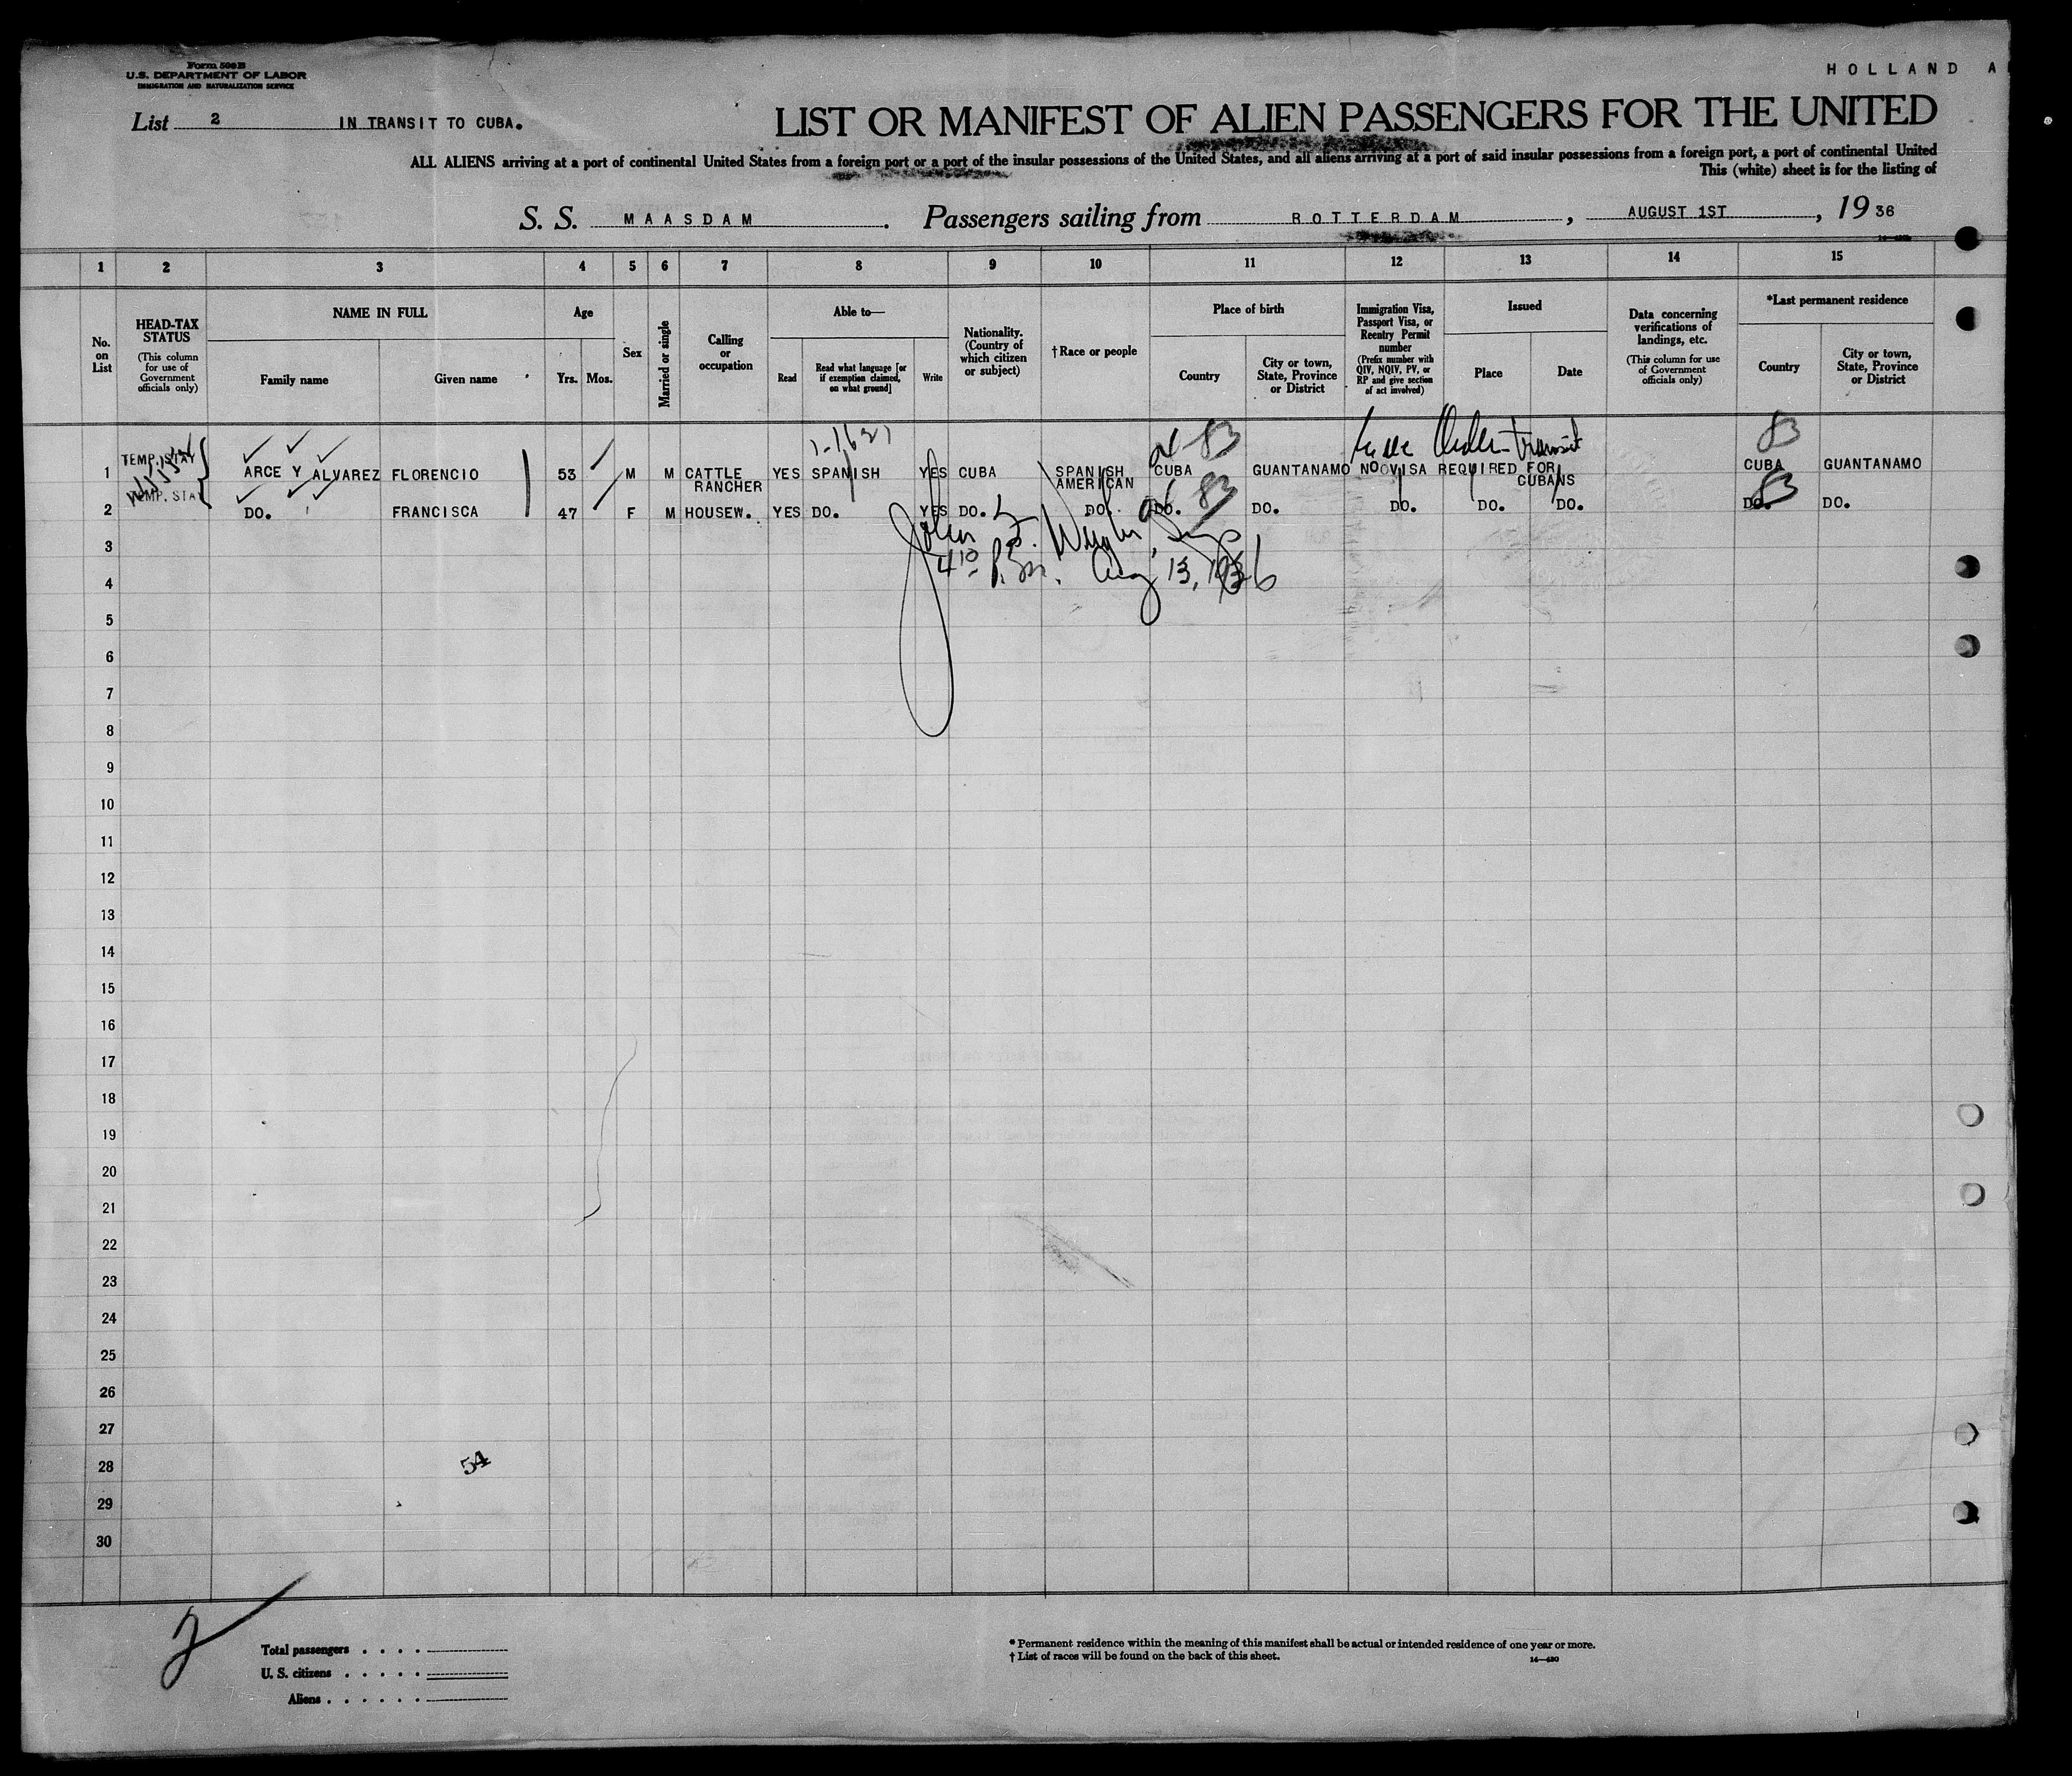 Form 500B
U.S. DEPARTMENT OF LABOR
IMMIGRATION AND NATURALIZATION SERVICE
HOLLAND A
List 2 IN TRANSIT TO CUBA.
LIST OR MANIFEST OF ALIEN PASSENGERS FOR THE UNITED
ALL ALIENS arriving at a port of continental United States from a foreign port or a port of the insular possessions of the United States, and all aliens arriving at a port of said insular possessions from a foreign port, a port of continental United
This (white) sheet is for the listing of
S. S. MAASDAM. Passengers sailing from ROTTERDAM, AUGUST 1ST, 19 36
1 2 3 4 5 6 7 8 9 10 11 12 13 14 15
No. on List
HEAD-TAX STATUS
(This column for use of Government officials only)
NAME IN FULL
Family name
Given name
Age
Yrs. Mos.
Sex
Married or single
Calling or occupation
Able to—
Read
Read what language [or if exemption claimed, on what ground]
Write
Nationality. (Country of which citizen or subject)
†Race or people
Place of birth
Country
City or town, State, Province or District
Immigration Visa, Passport Visa, or Reentry Permit number
(Prefix number with QIV, NQIV, PV, or RP and give section of act involved)
Issued
Place
Date
Data concerning verifications of landings, etc.
(This column for use of Government officials only)
*Last permanent residence
Country
City or town, State, Province or District
83 transit 83
1 TEMP. STAY ARCE Y ALVAREZ FLORENCIO 53 M M CATTLE RANCHER YES SPANISH YES CUBA SPANISH AMERICAN CUBA GUANTANAMO NO VISA REQUIRED FOR CUBANS CUBA GUANTANAMO
83 83
2 TEMP. STAY DO. FRANCISCA 47 F M HOUSEW. YES DO. YES DO. DO. DO. DO. DO. DO. DO. DO. DO.
John
4 10 P.M. Aug 13, 1936
3
4
5
6
7
8
9
10
11
12
13
14
15
16
17
18
19
20
21
22
23
24
25
26
27
28
54
29
30
2
Total passengers
U. S. citizens
Aliens
* Permanent residence within the meaning of this manifest shall be actual or intended residence of one year or more.
† List of races will be found on the back of this sheet.
14—480